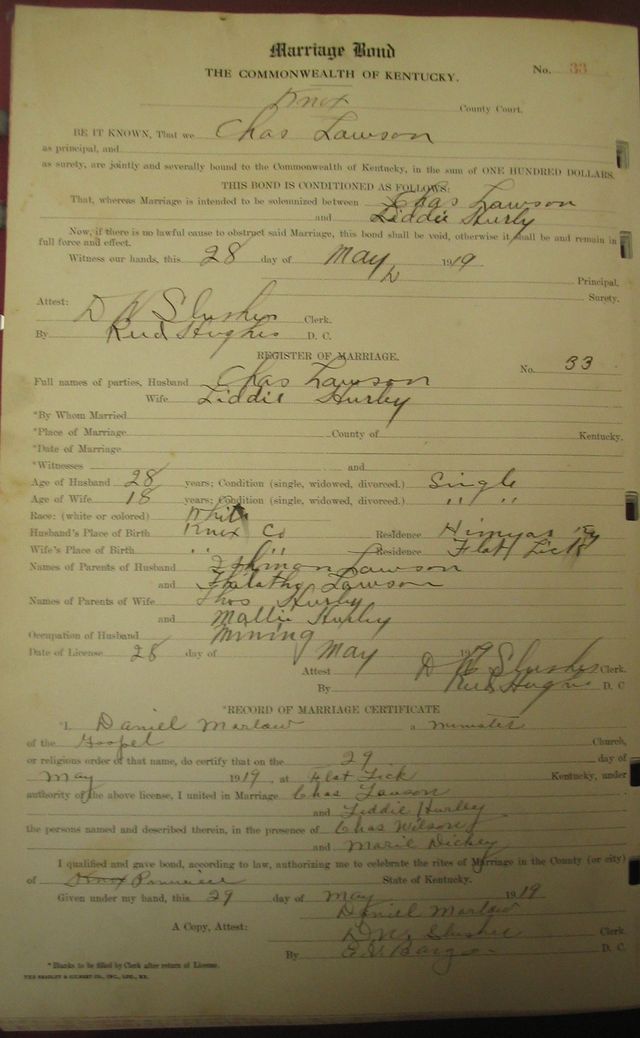 Marriage Bond
THE COMMONWEALTH OF KENTUCKY.
No. 33
Knox County Court.
BE IT KNOWN, That we Chas Lawson
as principal, and
as surety, are jointly and severally bound to the Commonwealth of Kentucky, in the sum of ONE HUNDRED DOLLARS.
THIS BOND IS CONDITIONED AS FOLLOWS:
That, whereas Marriage is intended to be solemnized between Chas Lawson
and Liddie Hurly
Now, if there is no lawful cause to obstruct said Marriage, this bond shall be void, otherwise it shall be and remain in
full force and effect.
Witness our hands, this 28 day of May 1919
Principal.
Surety.
Attest: D W Slusher Clerk.
By Reed Hughes D. C.
REGISTER OF MARRIAGE.
No. 33
Full names of parties, Husband Chas Lawson
Wife Liddie Hurley
*By Whom Married
*Place of Marriage County of Kentucky.
*Date of Marriage
*Witnesses and
Age of Husband 28 years; Condition (single, widowed, divorced.) Single
Age of Wife 18 years; Condition (single, widowed, divorced.) " "
Race: (white or colored) White
Husband's Place of Birth Knox Co Residence Himyar Ky
Wife's Place of Birth " " Residence Flat Lick
Names of Parents of Husband Lawson
and Lawson
Names of Parents of Wife Thos Hurley
and Mollie Hurley
Occupation of Husband Mining
Date of License 28 day of May 19
Attest D W Slusher Clerk.
By Reed Hughes D. C
*RECORD OF MARRIAGE CERTIFICATE
*I, Daniel Marlow a minister
of the Gospel Church,
or religious order of that name, do certify that on the 29 day of
May 1919, at Flat Lick Kentucky, under
authority of the above license, I united in Marriage Chas Lawson
and Liddie Hurley
the persons named and described therein, in the presence of Chas Wilson
and Marie Dickey
I qualified and gave bond, according to law, authorizing me to celebrate the rites of Marriage in the County (or city)
of Knox State of Kentucky.
Given under my hand, this 29 day of May 1919
Daniel Marlow
A Copy, Attest: D W Slusher Clerk.
By D. C.
*Blanks to be filled by Clerk after return of License.
THE BRADLEY & GILBERT CO., INC., LOU., KY.